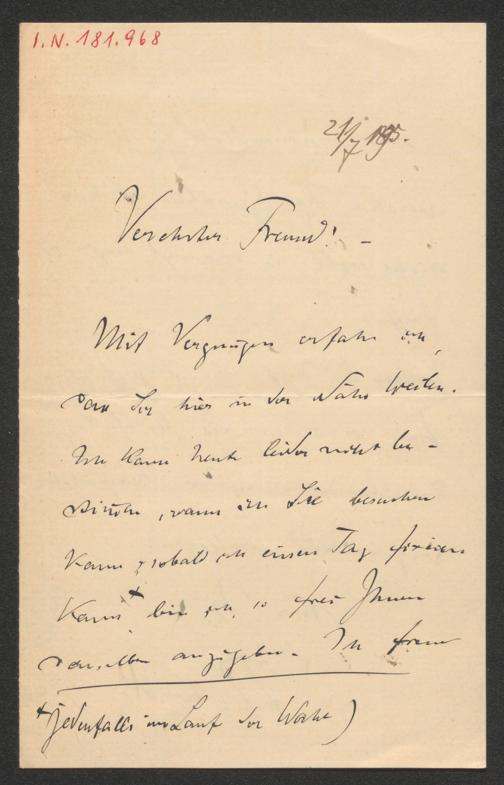 I.N. 181.968
21/7 195.
Verehrter Freund! –
Mit Vergnügen erfahre ich,
dass Sie hier in der Nähe weilen.
Ich kann heute leider nicht be-
stimmen, wann ich Sie besuchen
kann, sobald ich einen Tag fixieren
kann + bin ich so frei Ihnen
denselben anzugeben. Ich freue
+ jedenfalls im Lauf der Woche)